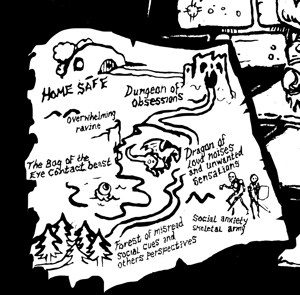 HOME SAFE
Dungeon of
Obsessions
Overwhelming
ravine
Dragon of
loud noises
and unwanted
Sensations
The Bog of the
Eye Contact beast
Social anxiety
skeletal army
Forest of misread
social cues and
others perspectives